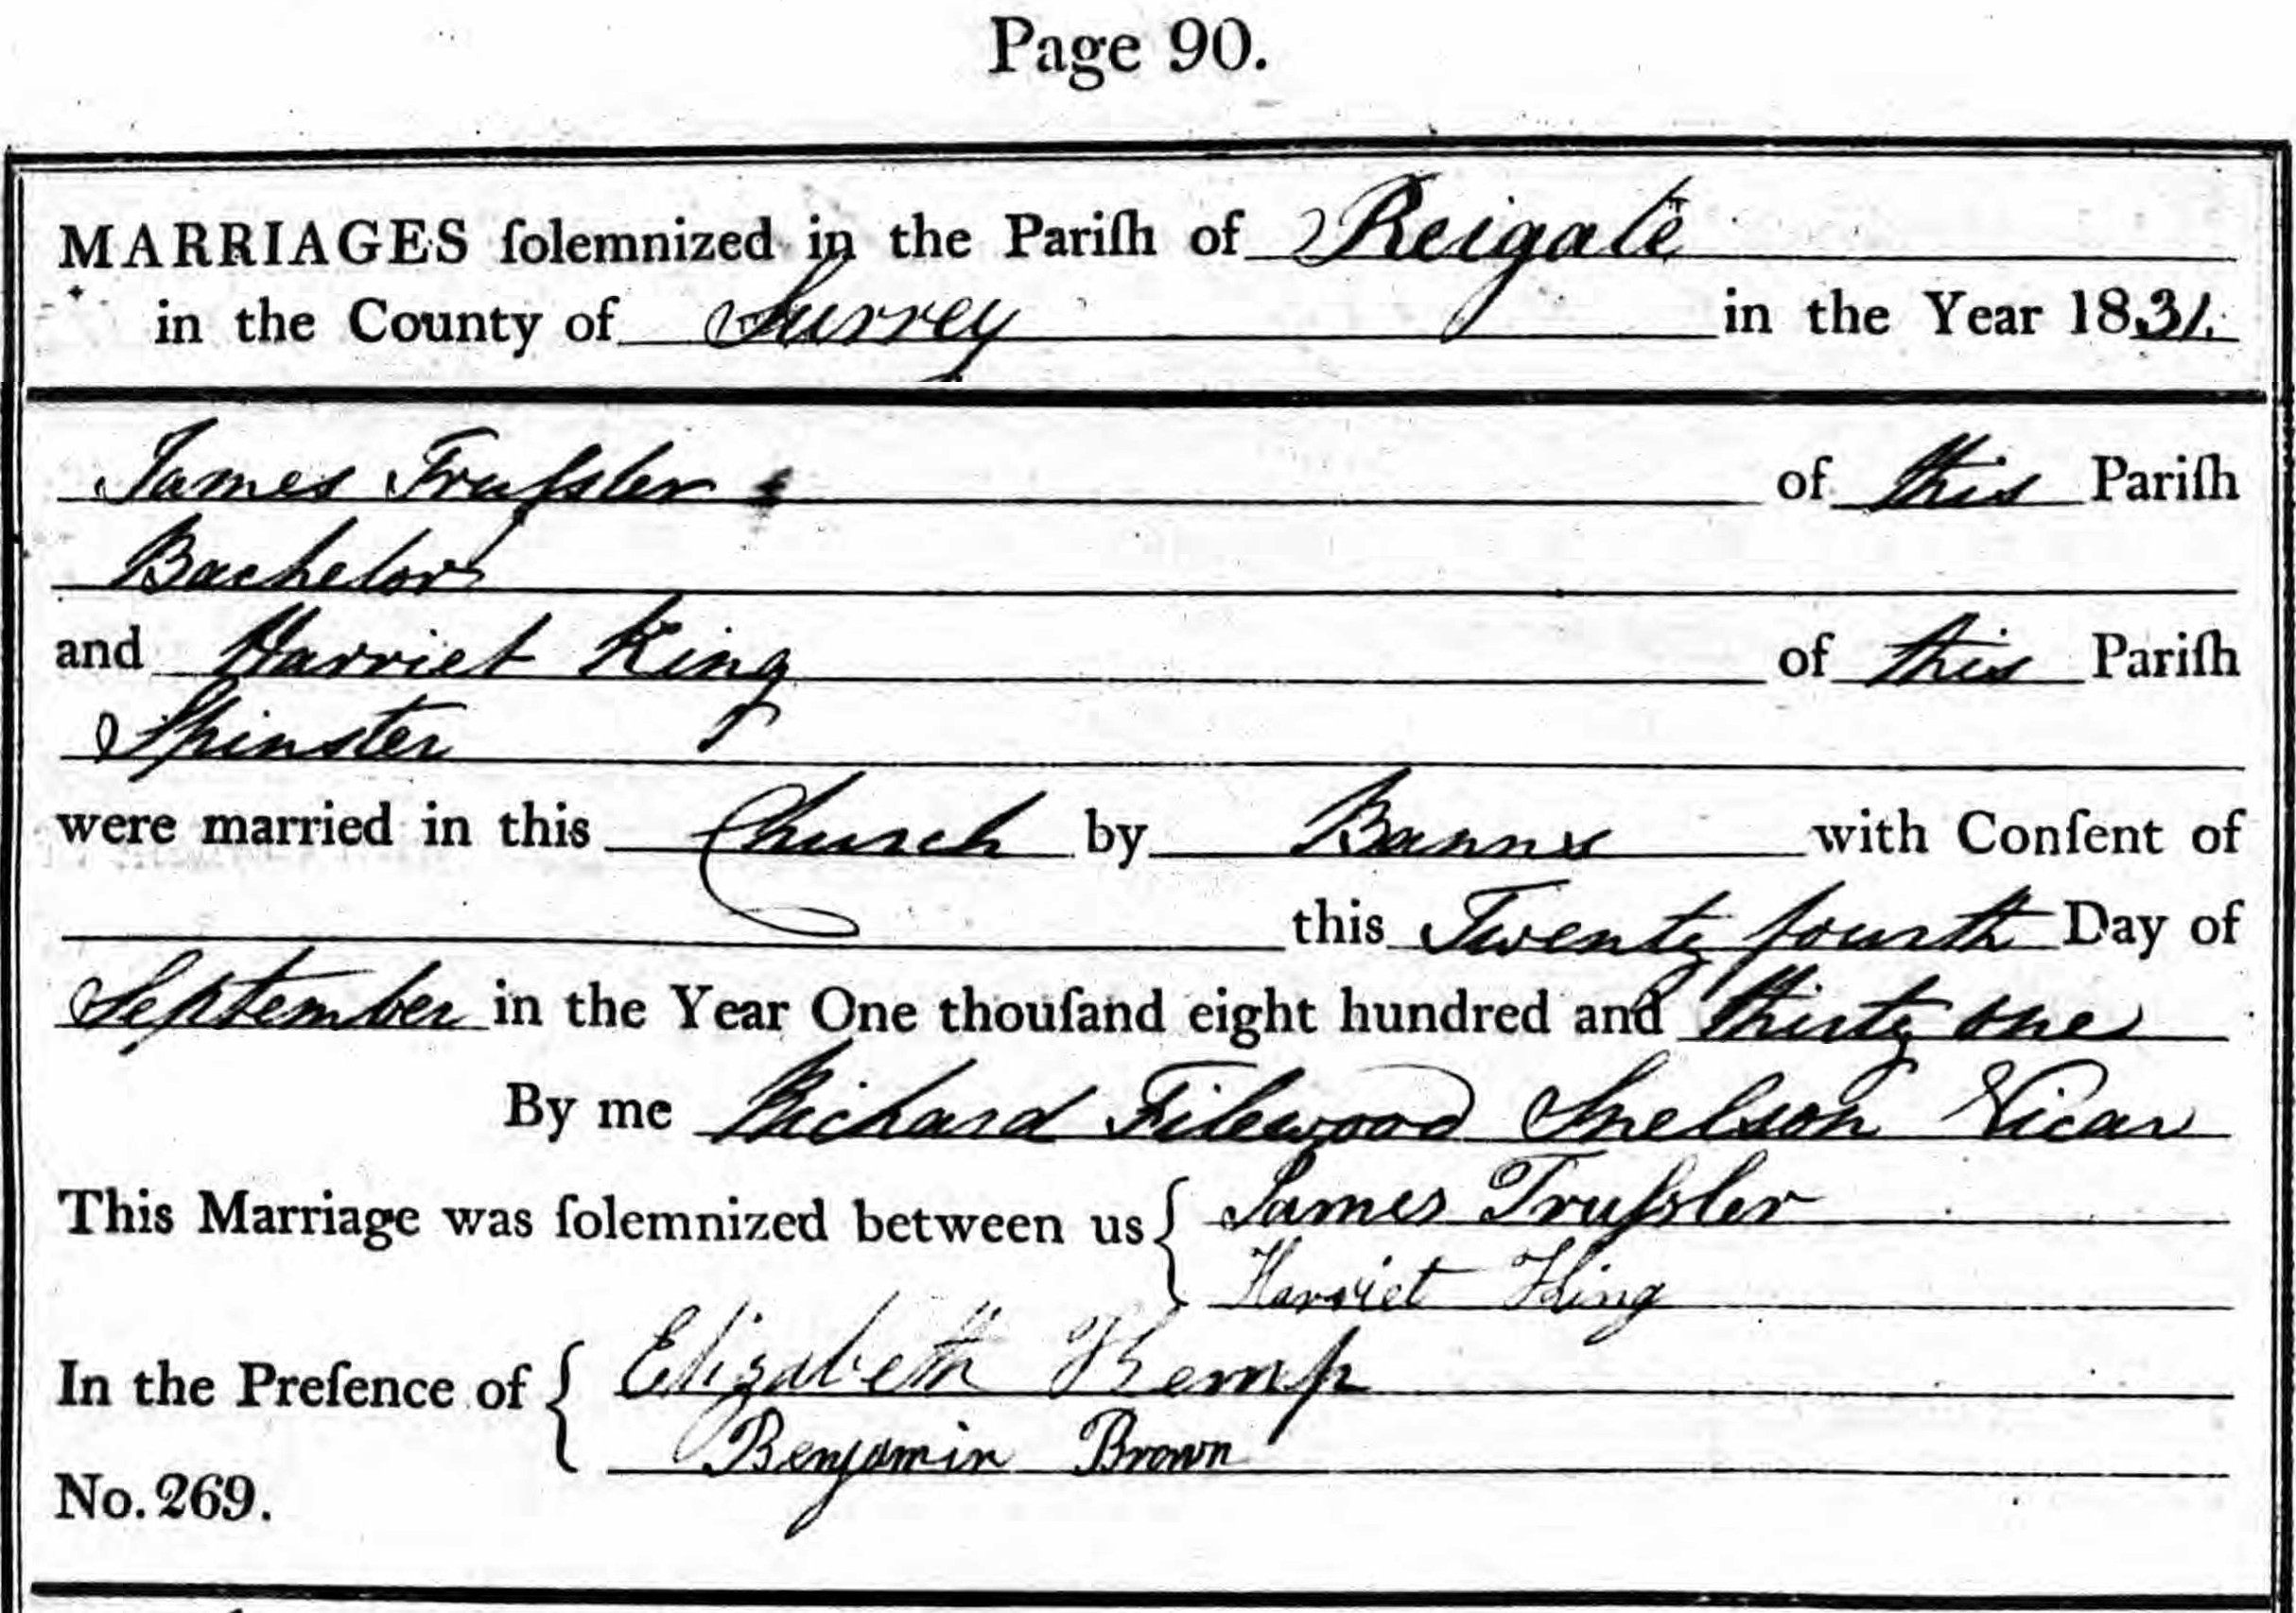 Page 90.
MARRIAGES ſolemnized in the Pariſh of Reigate
in the County of Surrey in the Year 1831.
James Truſsler of this Pariſh
Bachelor
and Harriet King of this Pariſh
Spinster
were married in this Church by Banns with Conſent of
this Twenty fourth Day of
September in the Year One thouſand eight hundred and thirty one
By me Richard Filewood Snelson Vicar
This Marriage was ſolemnized between us { James Truſsler
Harriet King
In the Preſence of { Elizabeth Kemp
Benjamin Brown
No. 269.